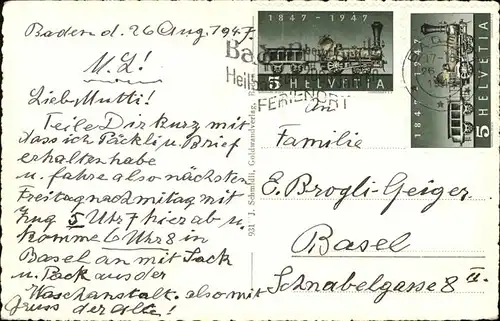 Baden d. 26 Aug. 1947.
M. L!
Liebs Mutti!
Teile Dir kurz mit
dass ich Päckli u. Brief
erhalten habe
u. fahre also nächsten
Freitag nachmitag mit
Zug 5 Uhr 7 hier ab u.
komme 6 Uhr 8 in
Basel an mit Sack
u. Pack aus der
Waschanstalt. also mit
Gruss der Alte!
1847 - 1947
5 HELVETIA
1847 - 1947
5 HELVETIA
Baden
Heil
FERIENORT
931 J. Schmidli, Goldwandverlag,
An
Familie
E. Brogli-Geiger
Basel
Schnabelgasse 8 II.